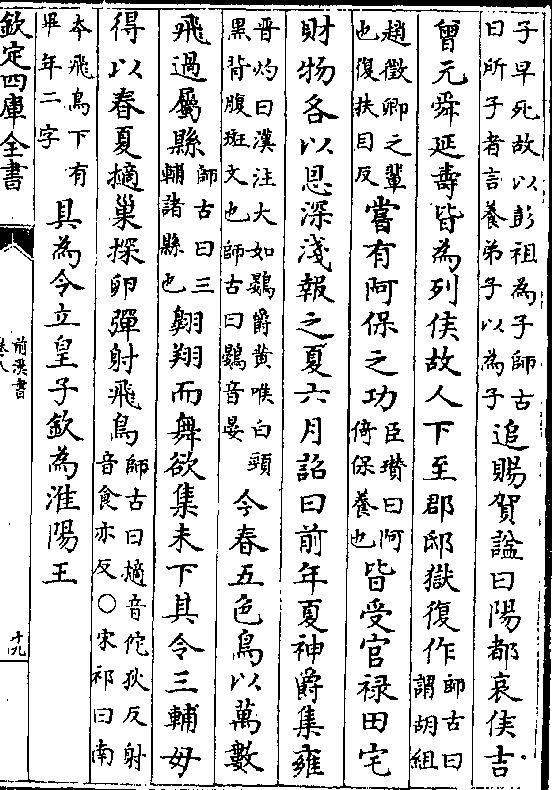 子早死故以彭祖為子師古
曰所子者言養弟子以為子
追賜賀諡曰陽都哀侯吉
曾元舜延壽皆為列侯故人下至郡邸獄復作
師古曰
謂胡組
趙徵卿之輩
也復扶目反
嘗有阿保之功
臣瓚曰阿
倚保養也
皆受官祿田宅
財物各以恩深淺報之夏六月詔曰前年夏神爵集雍
晉灼曰漢注大如鷃爵黃喉白頸
黑背腹斑文也師古曰鷃音晏
今春五色鳥以萬數
飛過屬縣
師古曰三
輔諸縣也
翺翔而舞欲集未下其令三輔毋
得以春夏擿巢探卵彈射飛鳥
師古曰擿音佗狄反射
音食亦反○宋祁曰南
夲飛鳥下有
畢年二字
具為令立皇子欽為淮陽王
欽定四庫全書
前漢書
卷八
十九